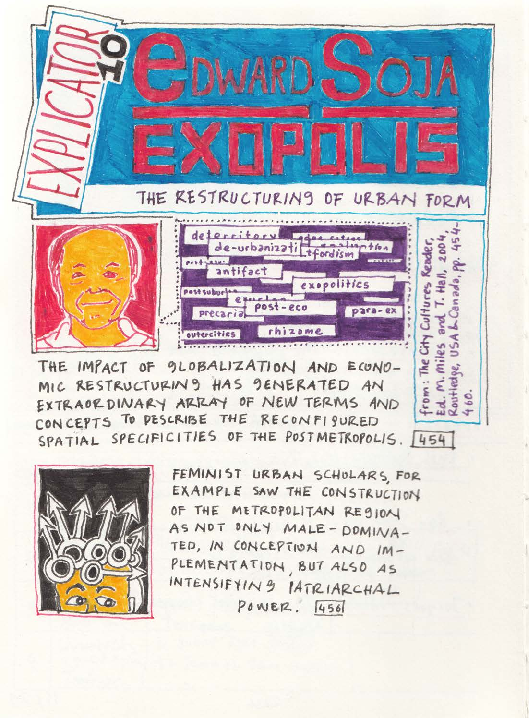 EXPLICATOR
10
EDWARD SOJA
EXOPOLIS
THE RESTRUCTURING OF URBAN FORM
deterritory
de-urbanizati
tfordism
antifact
exopolitics
postsuburb
post-eco
precaria
para-ex
outercities
rhizome
from: The City Cultures Reader,
Ed. M. Miles and T. Hall, 2004,
Routledge, USA & Canada, pp. 454-
460.
THE IMPACT OF GLOBALIZATION AND ECONO-
MIC RESTRUCTURING HAS GENERATED AN
EXTRAORDINARY ARRAY OF NEW TERMS AND
CONCEPTS TO DESCRIBE THE RECONFIGURED
SPATIAL SPECIFICITIES OF THE POSTMETROPOLIS. 454
FEMINIST URBAN SCHOLARS, FOR
EXAMPLE SAW THE CONSTRUCTION
OF THE METROPOLITAN REGION
AS NOT ONLY MALE-DOMINA-
TED, IN CONCEPTION AND IM-
PLEMENTATION, BUT ALSO AS
INTENSIFYING PATRIARCHAL
POWER. 456